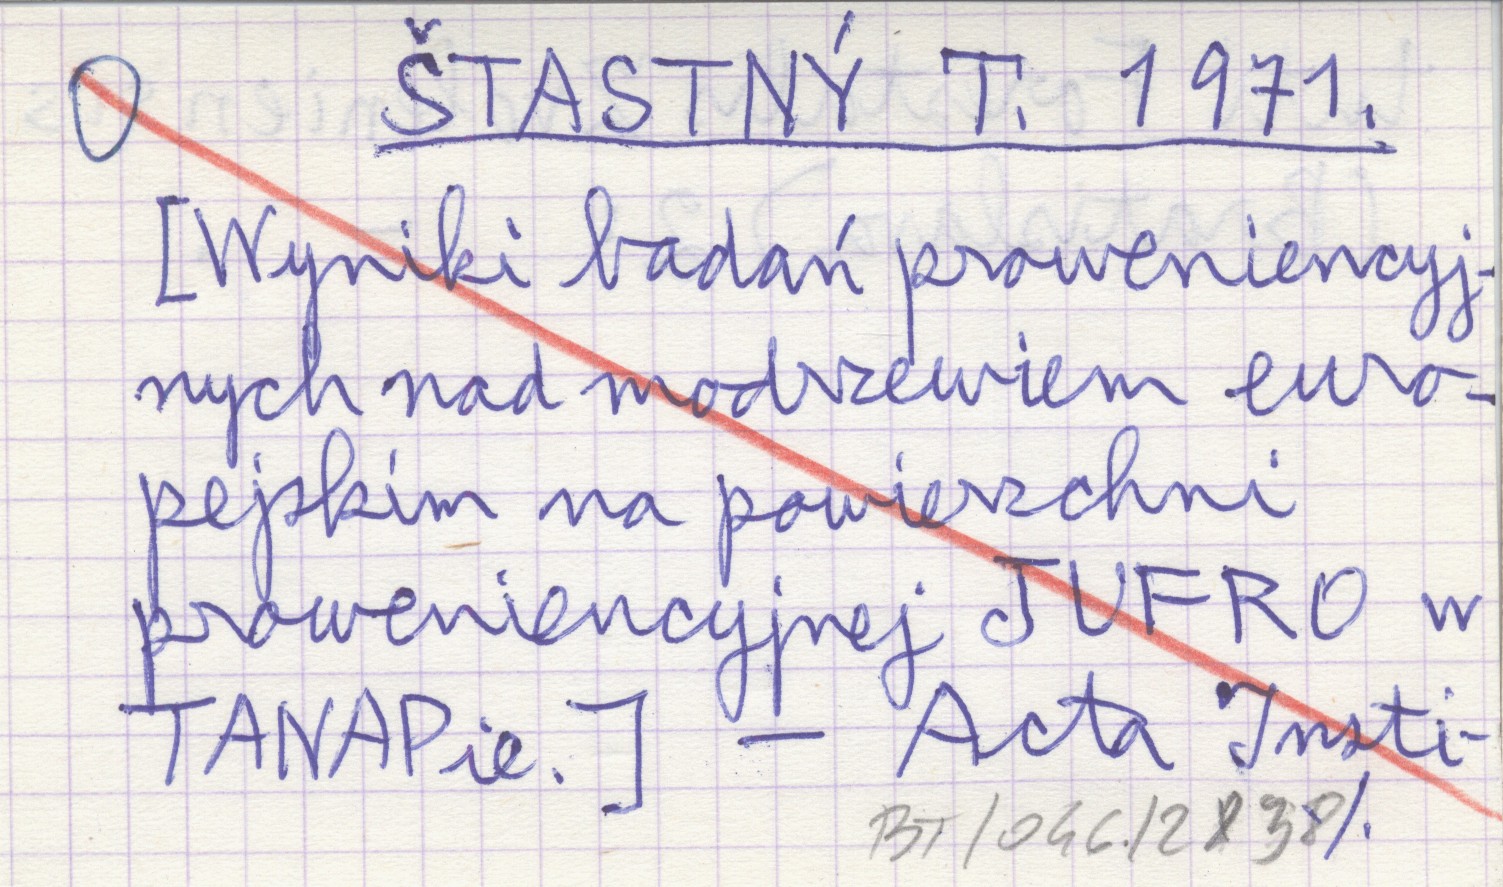 ŠTASTNÝ T. 1971.
[Wyniki badań proweniencyj-
nych nad modrzewiem euro-
pejskim na powierzchni
proweniencyjnej JUFRO w
TANAPie.] — Acta Insti-
·/.